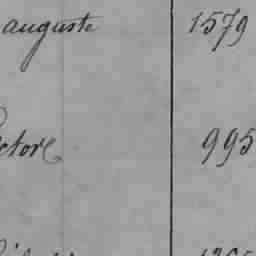 auguste 1579
ctore 995